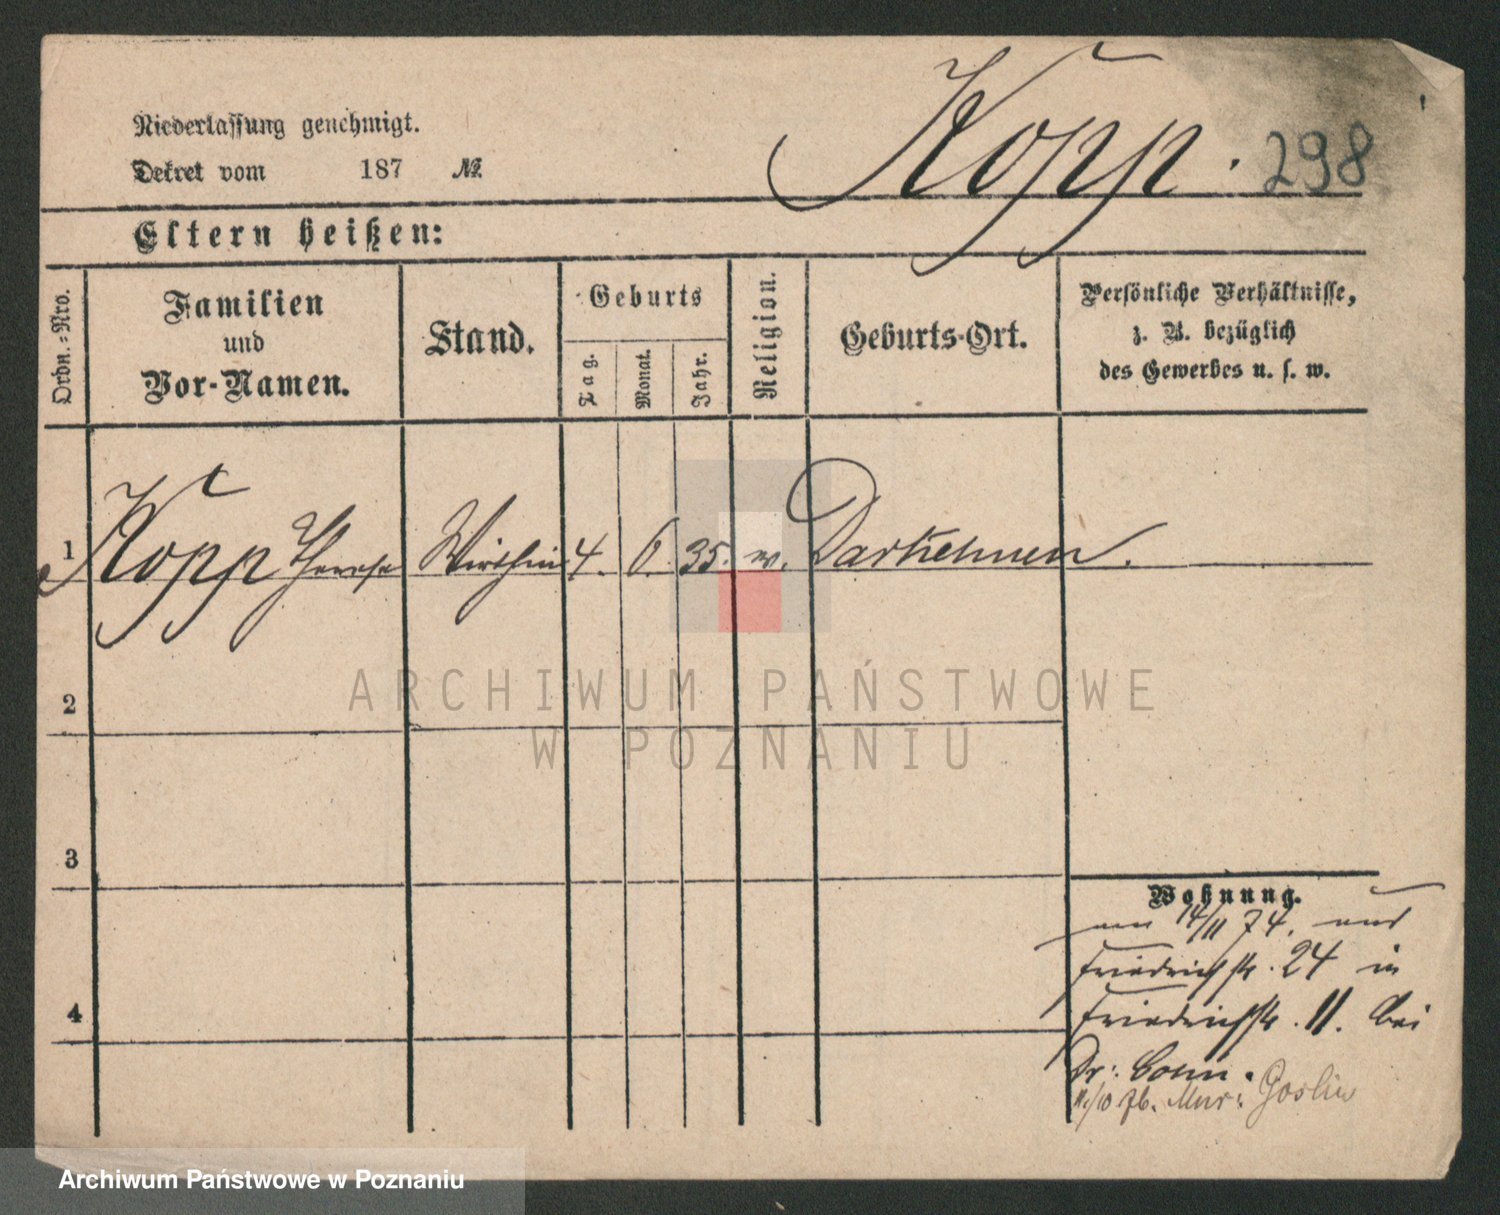 Niederlassung genehmigt.
Dekret vom 187 №.
Kopp. 298
Eltern heißen:
Ordn.-Nro.
Familien
und
Vor-Namen.
Stand.
Geburts
Tag.
Monat.
Jahr.
Religion.
Geburts-Ort.
Persönliche Verhältnisse,
z. B. bezüglich
des Gewerbes u. s. w.
1 Kopp Therese Wirthin 4. 6. 35. w. Darkehmen.
2
3
4
Wohnung.
14/11 74. aus
Friedrichstr. 24 in
Friedrichstr. 11. bei
Dr:
11/10 76. Mur: Goslin
ARCHIWUM PAŃSTWOWE
W POZNANIU
Archiwum Państwowe w Poznaniu